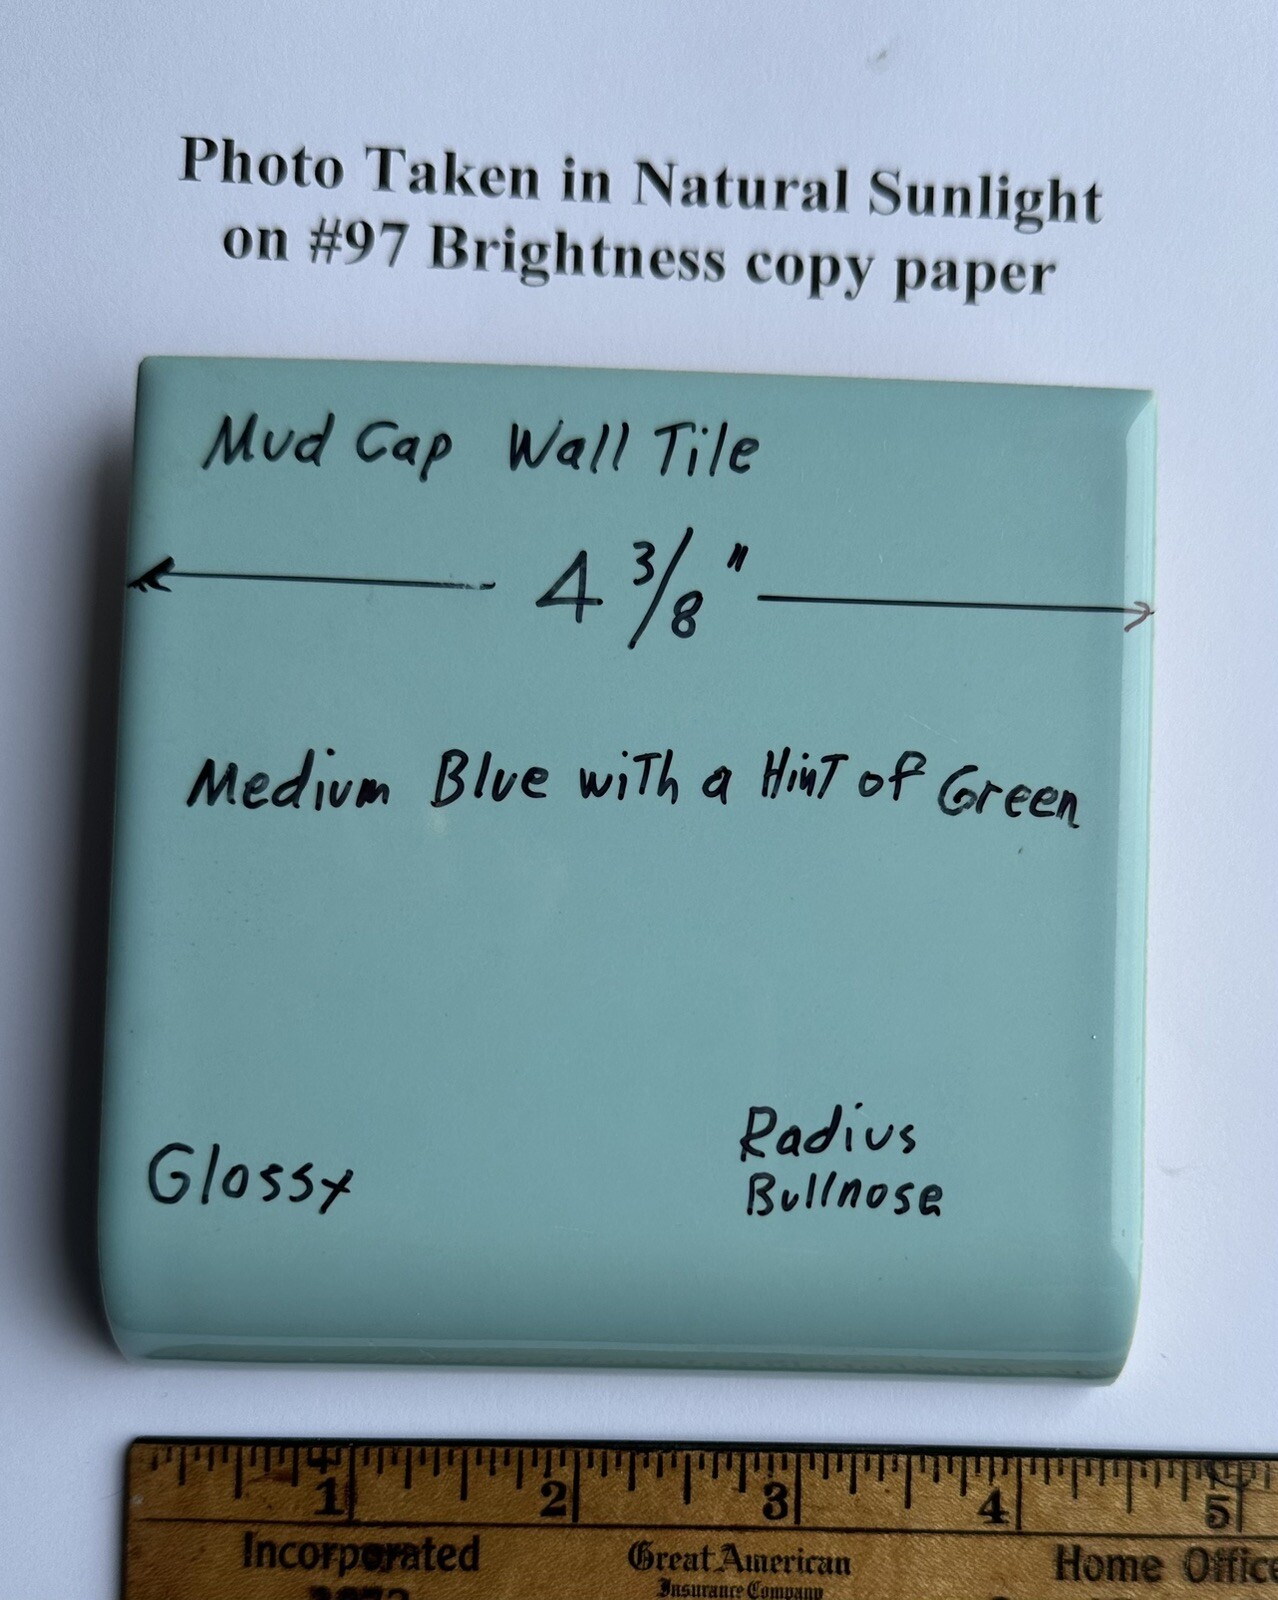 Photo Taken in Natural Sunlight
on #97 Brightness copy paper
Mud Cap Wall Tile
4 3/8"
Medium Blue with a Hint of Green
Radius
Glossy
Bullnose
1 2 3 4 5
Incorporated Great American Home Office
Insurance Company